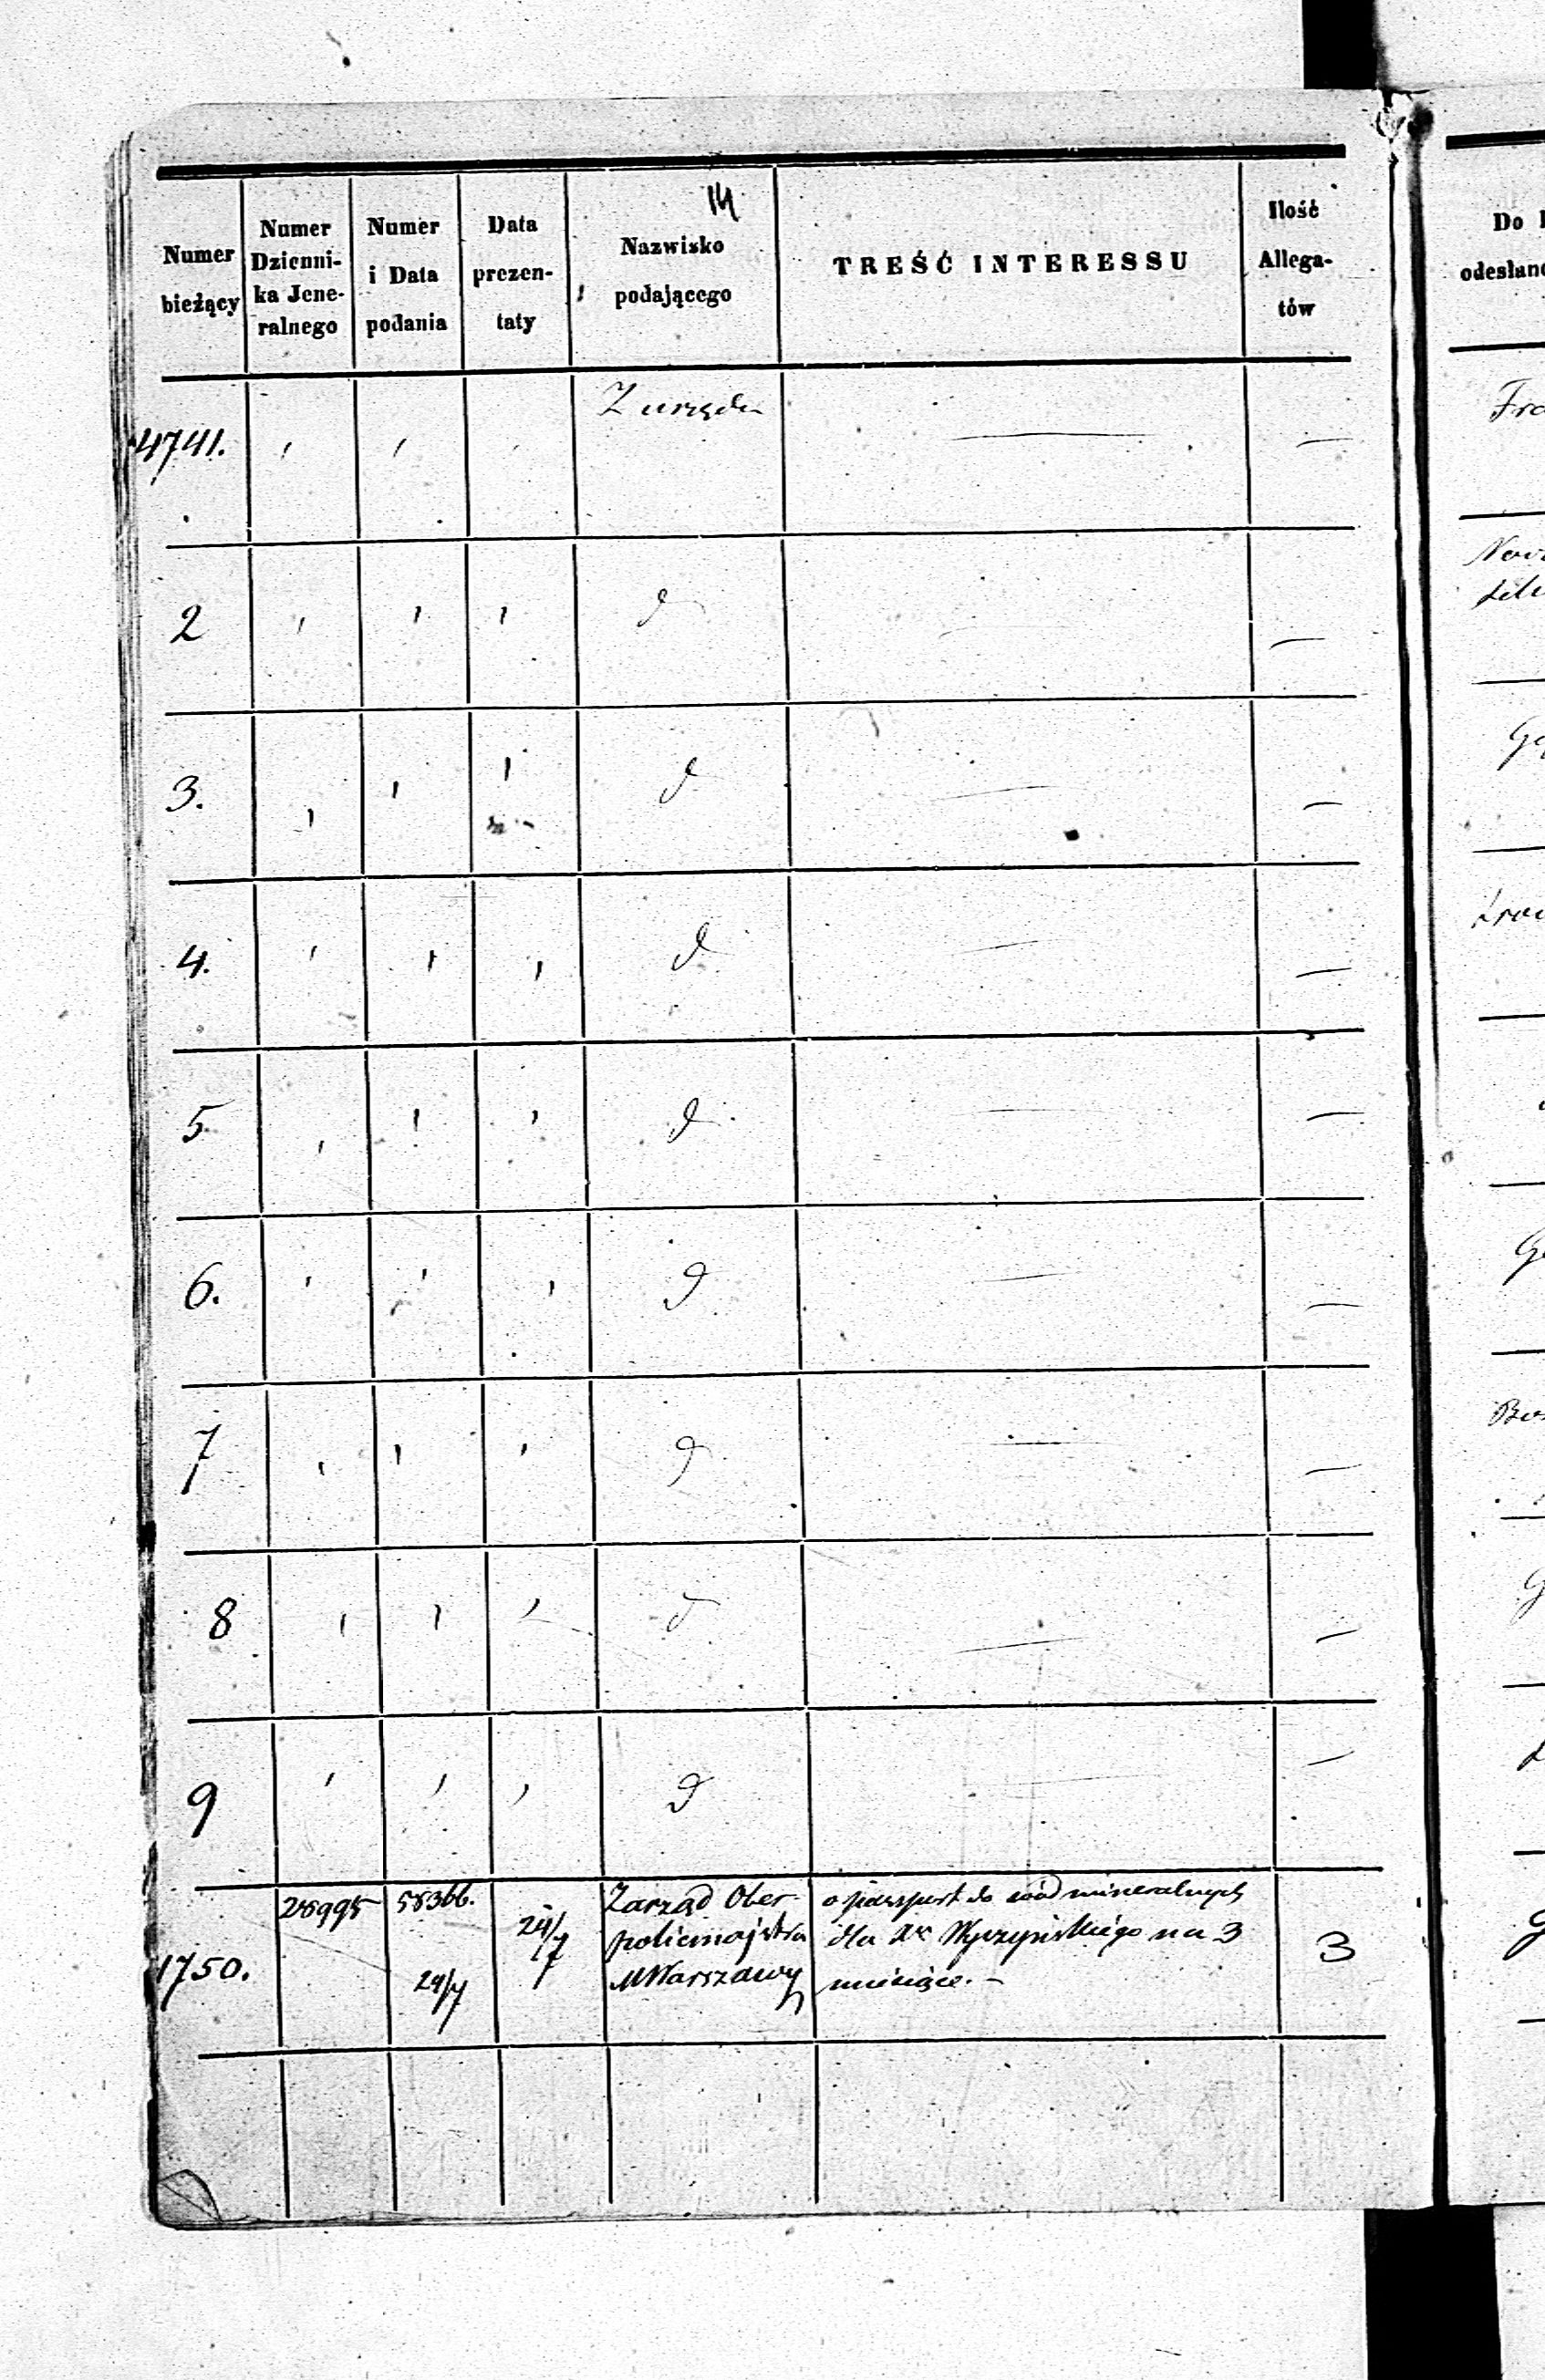 14
Numer bieżący
Numer Dzienni- ka Jene- ralnego
Numer i Data podania
Data prezen- taty
Nazwisko podającego
TREŚĆ INTERESSU
Ilość Allega- tów
Do
odesłano
4741. Z urzędu —
2 d —
3. d —
4. d —
5 d —
6. d —
7 d —
8 d —
9 d —
1750. 28995 58366. 24/7 24/7
Zarząd Ober-
policmajstra
MWarszawy
o paszport do wód mineralnych
dla Wyczyńskiego na 3
miesiące. –
3